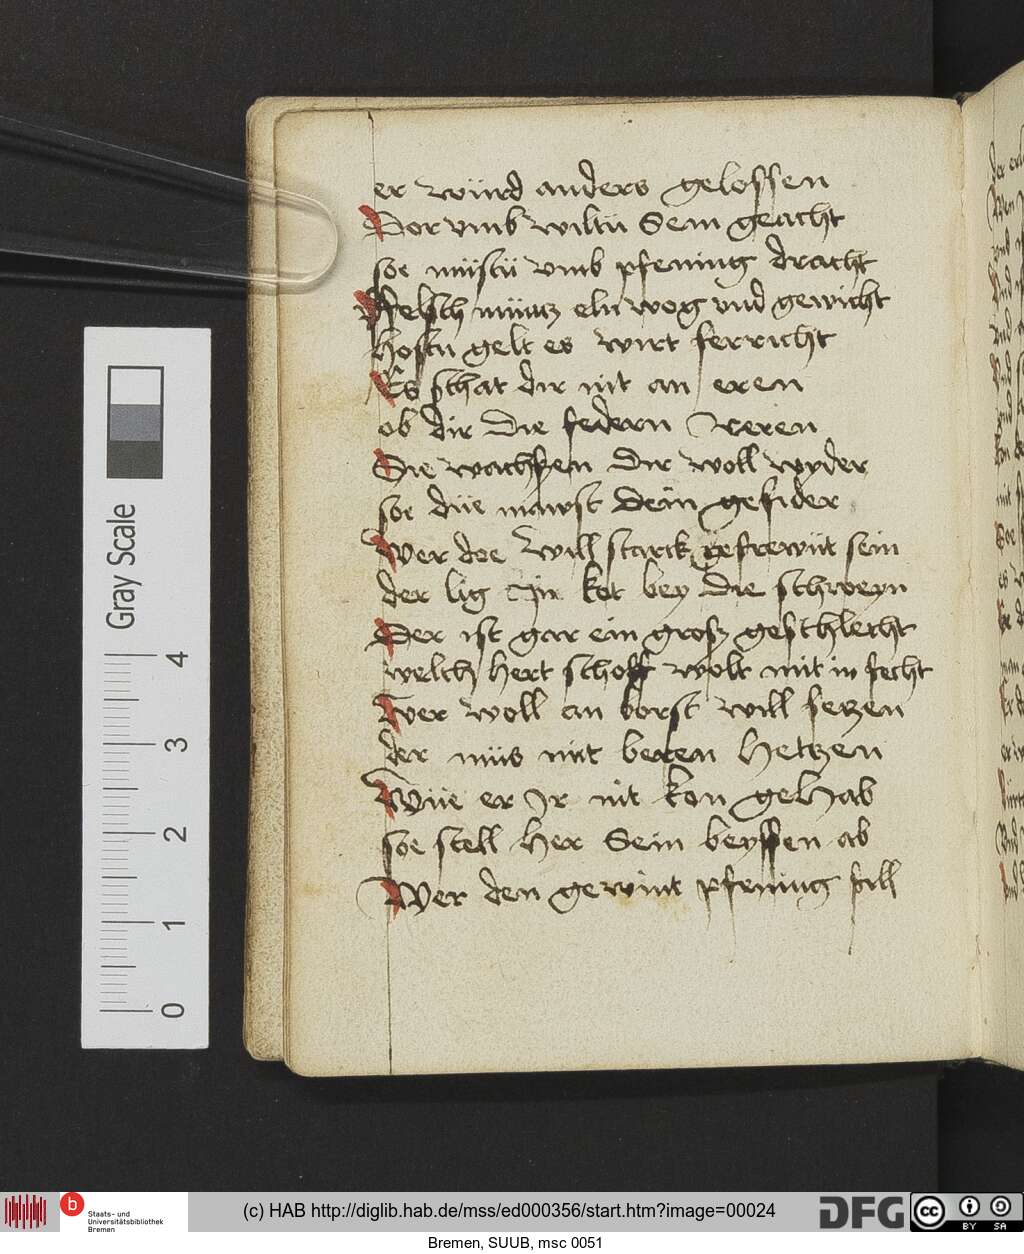 er würd anders gelossen
Dor vmb wiltu Sein geacht
soe müstu vmb pfening dracht
Felsch müntz eln wog vnd gewicht
hostu gelt es wirt ferricht
Es schat dir nit an eren
ob dir die federn reren
Die wachsen dir woll wyder
soe düe mawst dein gefider
Wer doe will starck gefrewnt sein
der lig In kot bey die schweyn
Der ist gar ein grosz geschlecht
welch hert schoff wolt mit in fecht
Wer woll an borst will setzen
der müs mit beren hetzen
Wüe er Ir nit kon gehab
soe stell her Sein beyssen ab
Wer den gewint pfening fill
Gray Scale
4
3
2
1
0
b
Staats- und
Universitätsbibliothek
Bremen
(c) HAB http://diglib.hab.de/mss/ed000356/start.htm?image=00024
DFG
cc
BY SA
Bremen, SUUB, msc 0051